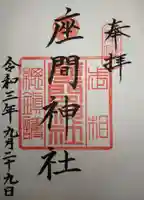 奉拝
座間神社
令和三年九月二十九日